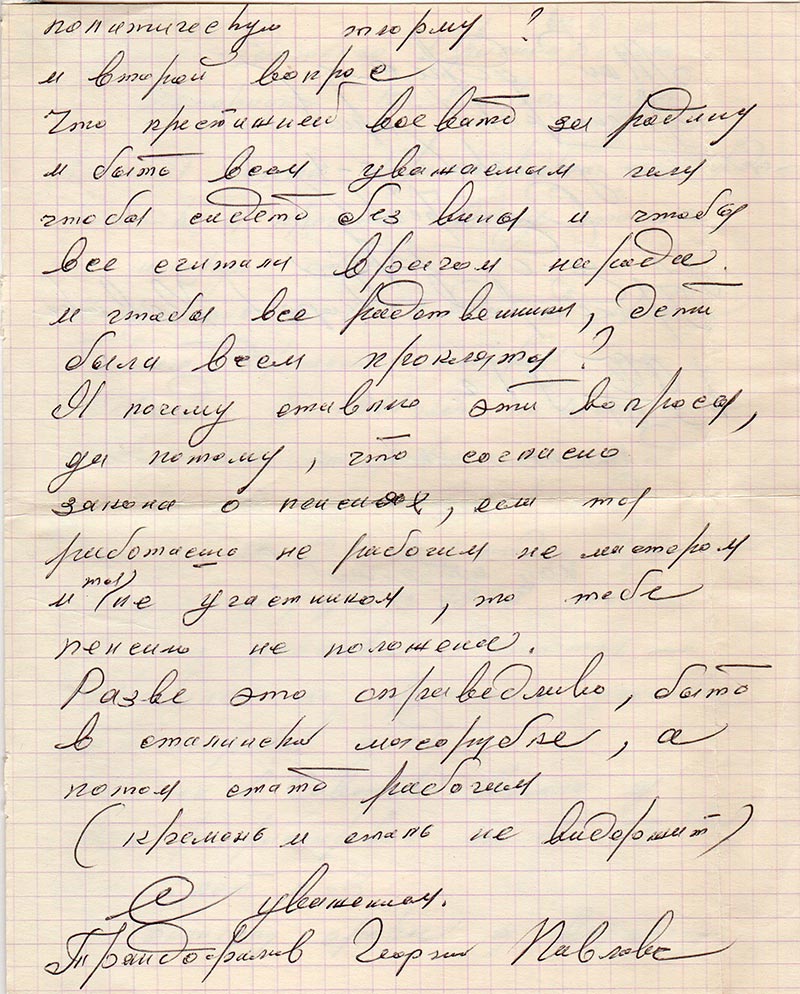 политическую тюрму?
и второй вопрос
Что престижней воевать за родину
и быть всем уважаемым или
чтобы сидеть без вины и чтобы
все считали врагом народа.
и чтобы все родственники, дети
были всем прокляты?
И почему ставлю эти вопросы,
да потому, что согласно
закона о пенсиях, если ты
работаешь не рабочим не мастером
и ты не участником, то тебе
пенсию не положена.
Разве это справедливо, быть
в сталинской мясорубке, а
потом стать рабочим
(кремень и сталь не видержит)
С уважением.
Трандофилов Георги Павлов